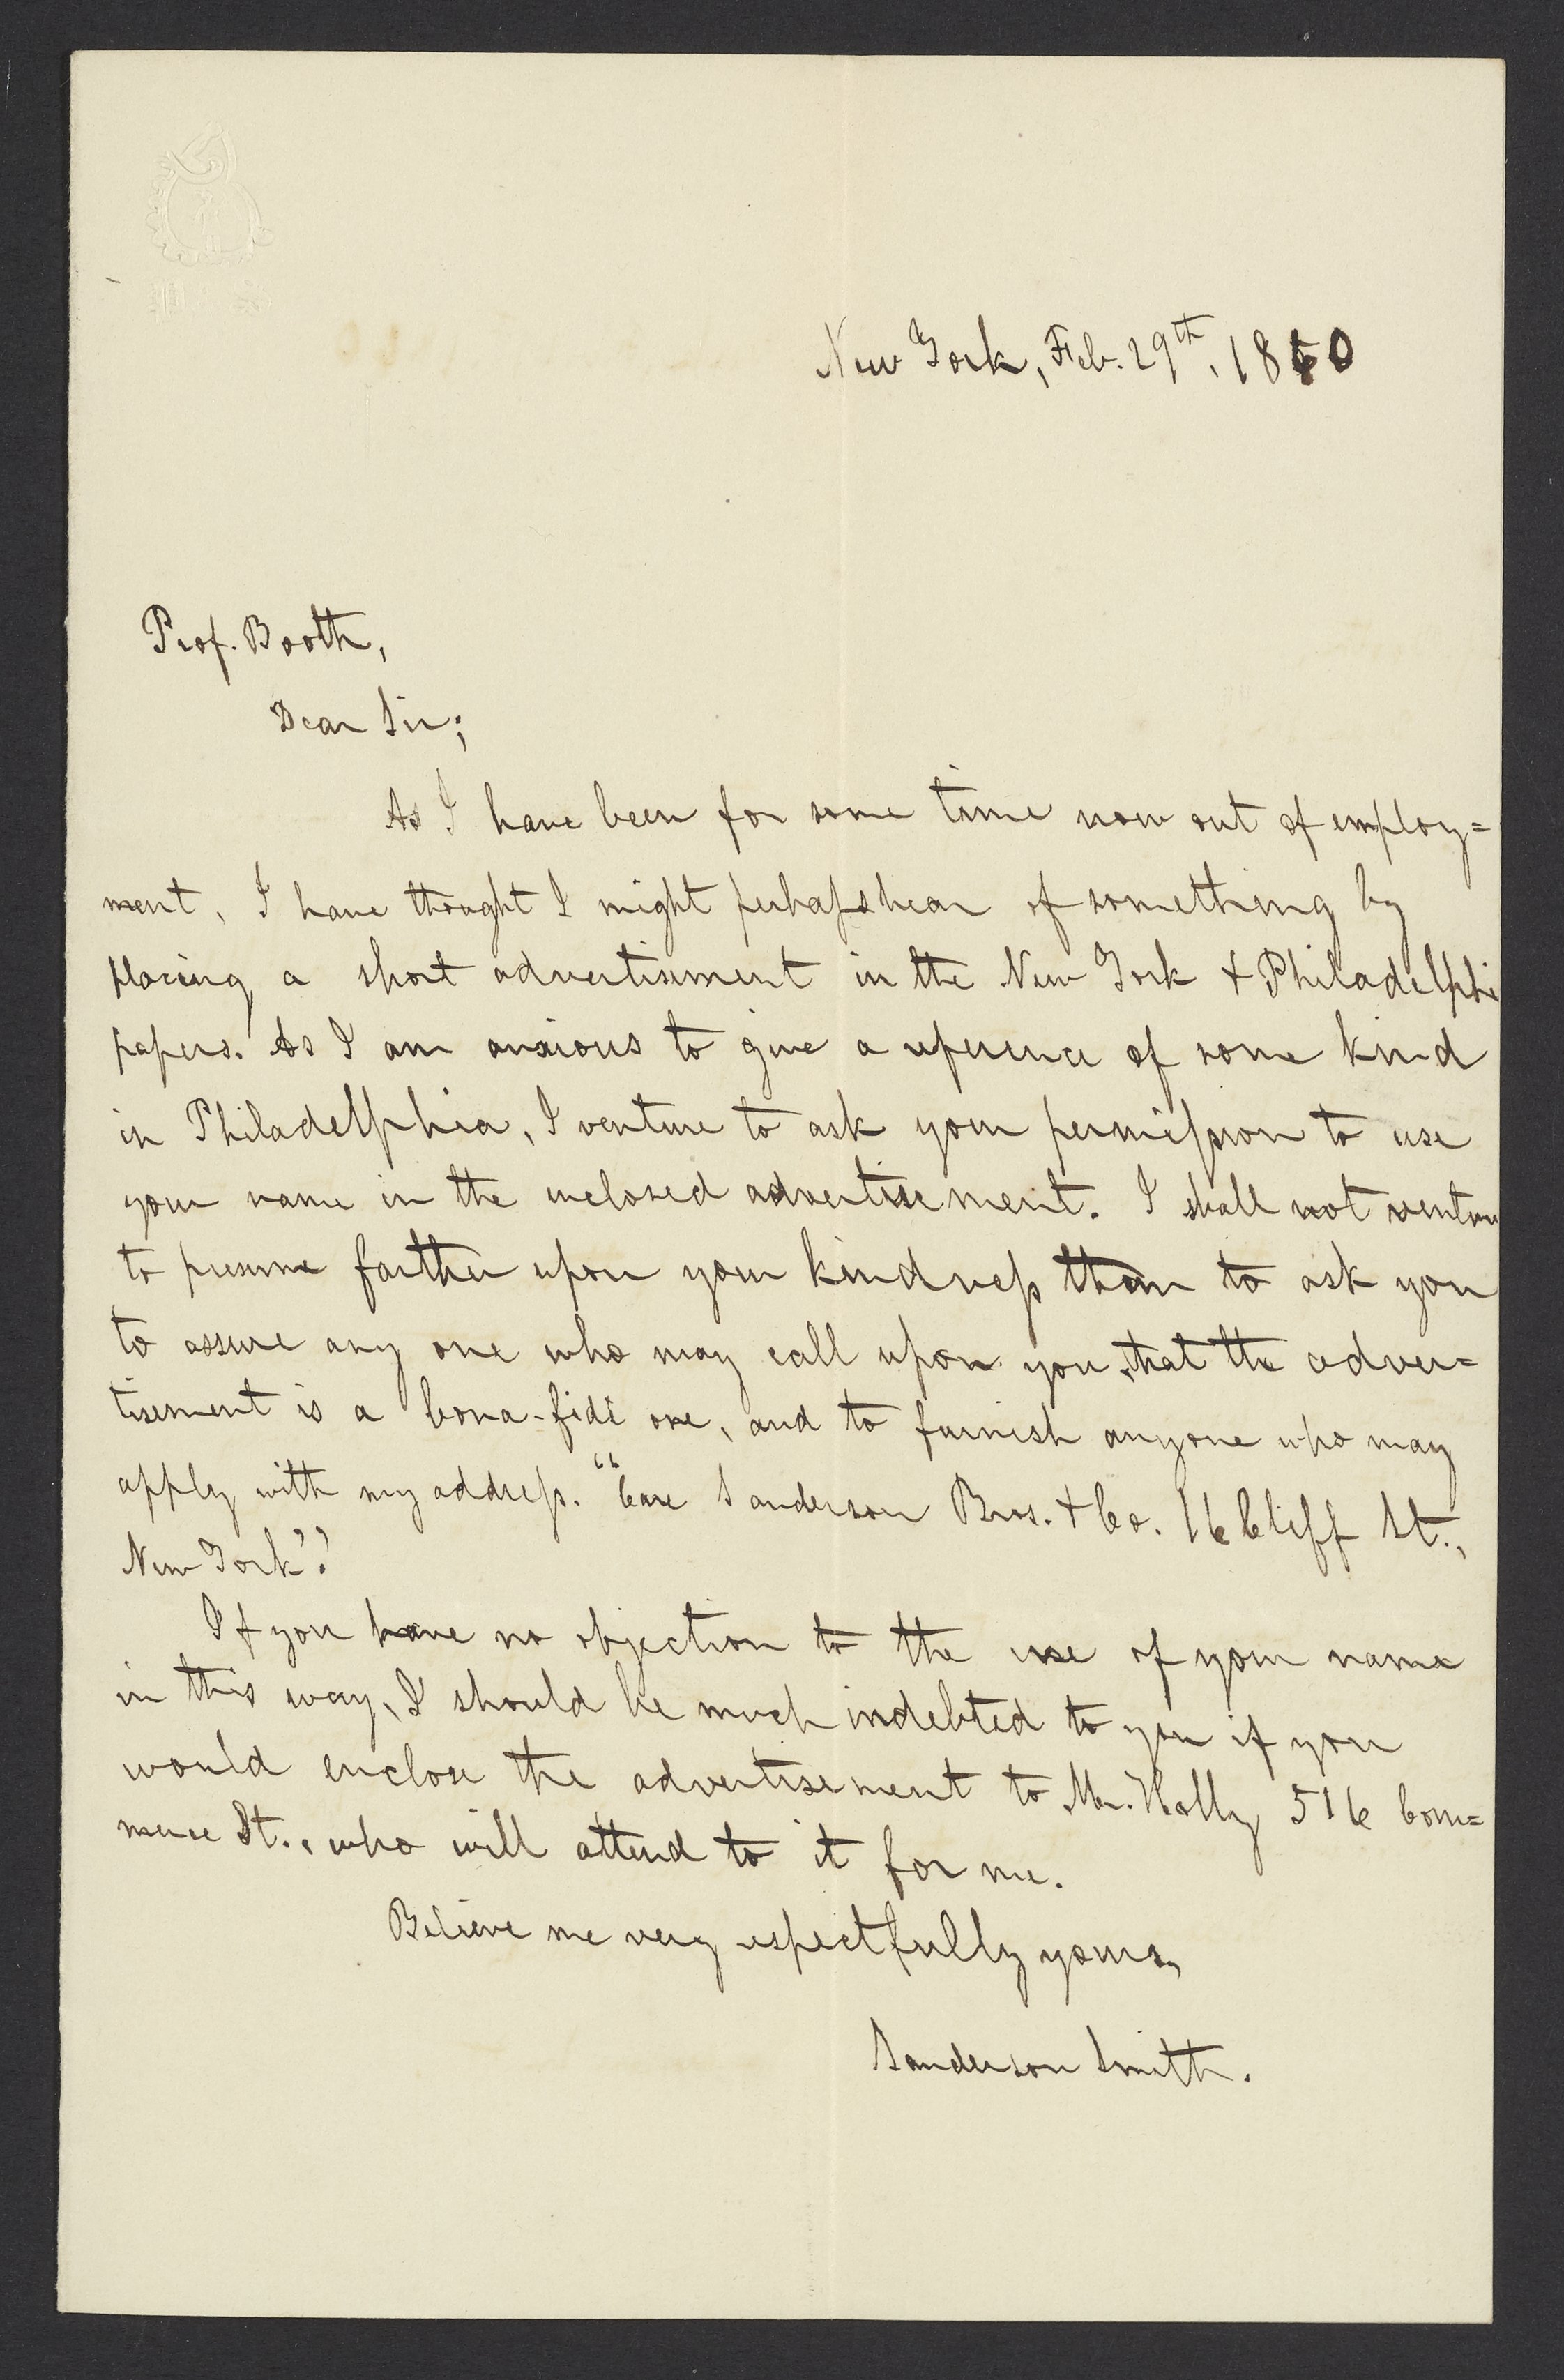 New York, Feb. 29th, 1860
Prof. Booth,
Dear Sir;
As I have been for some time now out of employ=
ment, I have thought I might perhaps hear of something by
placing a short advertisement in the New York & Philadelphi
papers. As I am anxious to give a reference of some kind
in Philadelphia, I venture to ask your permission to use
your name in the inclosed advertisement. I shall not venture
to presume farther upon your kindness than to ask you
to assure any one who may call upon you, that the adver=
tisement is a bona-fide one, and to furnish anyone who may
apply with my address. "Care Sanderson Bros. & Co. 16 Cliff St.,
New York".
If you have no objection to the use of your name
in this way, I should be much indebted to you if you
would enclose the advertisement to Mr. Holly 516 Com=
merce St., who will attend to it for me.
Believe me very respectfully yours,
Sanderson Smith.